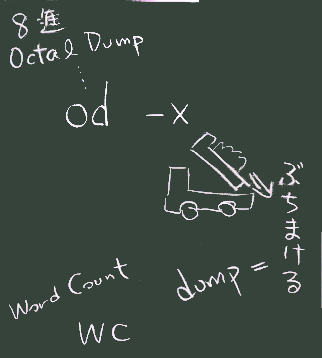 8進
Octal Dump
od -x
ぶちまける
dump =
Word Count
WC